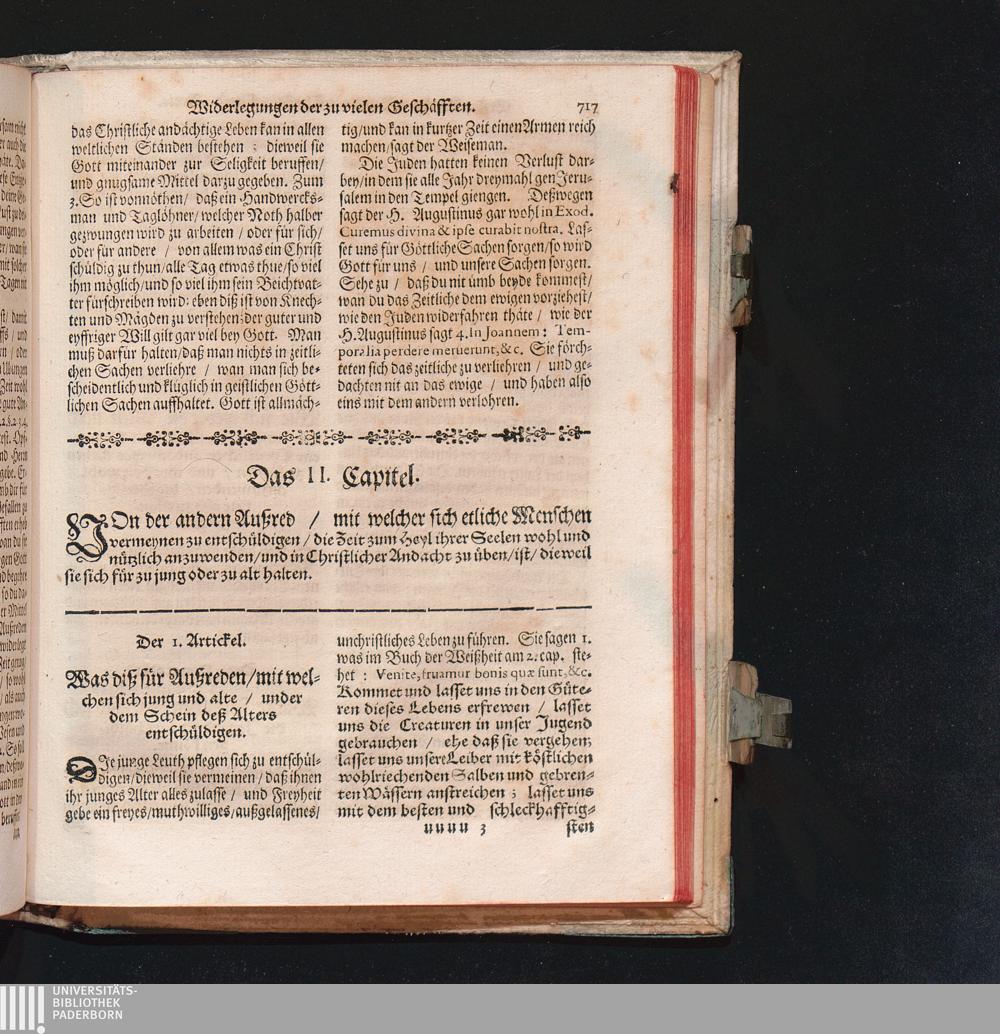 Widerlegungen der zu vielen Geschäfften. 717
das Christliche andächtige Leben kan in allen
weltlichen Ständen bestehen ; dieweil sie
Gott miteinander zur Seligkeit beruffen/
und gnugsame Mittel darzu gegeben. Zum
3. So ist vonnöthen/ daß ein Handwercks-
man und Taglöhner/ welcher Noth halber
gezwungen wird zu arbeiten / oder für sich/
oder für andere / von allem was ein Christ
schuldig zu thun/alle Tag etwas thue/so viel
ihm möglich/und so viel ihm sein Beichtvat-
ter fürschreiben wird: eben diß ist von Knech-
ten und Mägden zu verstehen: der guter und
eyffriger Will gilt gar viel bey Gott. Man
muß darfür halten/daß man nichts in zeitli-
chen Sachen verliehre / wan man sich be-
scheidentlich und klüglich in geistlichen Gött-
lichen Sachen auffhaltet. Gott ist allmäch-
tig/und kan in kurtzer Zeit einen Armen reich
machen/sagt der Weiseman.
Die Juden hatten keinen Verlust dar-
bey/in dem sie alle Jahr dreymahl gen Jeru-
salem in den Tempel giengen. Deßwegen
sagt der H. Augustinus gar wohl in Exod.
Curemus divina & ipse curabit nostra. Las-
set uns für Göttliche Sachen sorgen/so wird
Gott für uns / und unsere Sachen sorgen.
Sehe zu / daß du nit umb beyde kommest/
wan du das Zeitliche dem ewigen vorziehest/
wie den Juden widerfahren thäte / wie der
H. Augustinus sagt 4. In Joannem: Tem-
poralia perdere meruerunt, &c. Sie förch-
teten sich das zeitliche zu verliehren / und ge-
dachten nit an das ewige / und haben also
eins mit dem andern verlohren.
Das II. Capitel.
VOn der andern Außred / mit welcher sich etliche Menschen
vermeynen zu entschüldigen / die Zeit zum Heyl ihrer Seelen wohl und
nützlich anzuwenden/und in Christlicher Andacht zu üben/ist/ dieweil
sie sich für zu jung oder zu alt halten.
Der 1. Artickel.
Was diß für Außreden/mit wel-
chen sich jung und alte / under
dem Schein deß Alters
entschüldigen.
DIe junge Leuth pflegen sich zu entschül-
digen/dieweil sie vermeinen / daß ihnen
ihr junges Alter alles zulasse / und Freyheit
gebe ein freyes/muthwilliges/außgelassenes/
unchristliches Leben zu führen. Sie sagen 1.
was im Buch der Weißheit am 2. cap. ste-
het : Venite, fruamur bonis quæ sunt, &c.
Kommet und lasset uns in den Güte-
ren dieses Lebens erfrewen / lasset
uns die Creaturen in unser Jugend
gebrauchen / ehe daß sie vergehen;
lasset uns unsere Leiber mit köstlichen
wohlriechenden Salben und gebren-
ten Wässern anstreichen ; lasset uns
mit dem besten und schleckhafftig-
uuuu 3 sten
UNIVERSITÄTS-
BIBLIOTHEK
PADERBORN